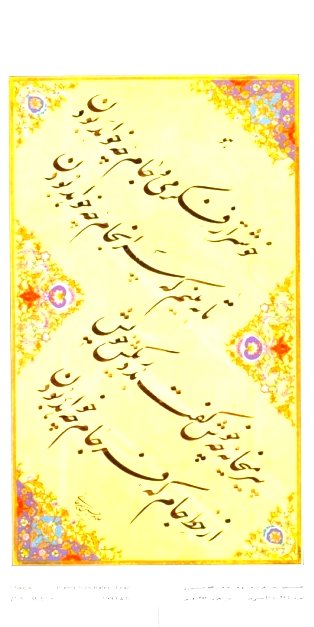 خوشتر از فکر می و جام چه خواهد بودن
تا ببینم که سرانجام چه خواهد بودن
پیر میخانه چه خوش گفت بدردیکش خویش
از خط جام که فرجام چه خواهد بودن